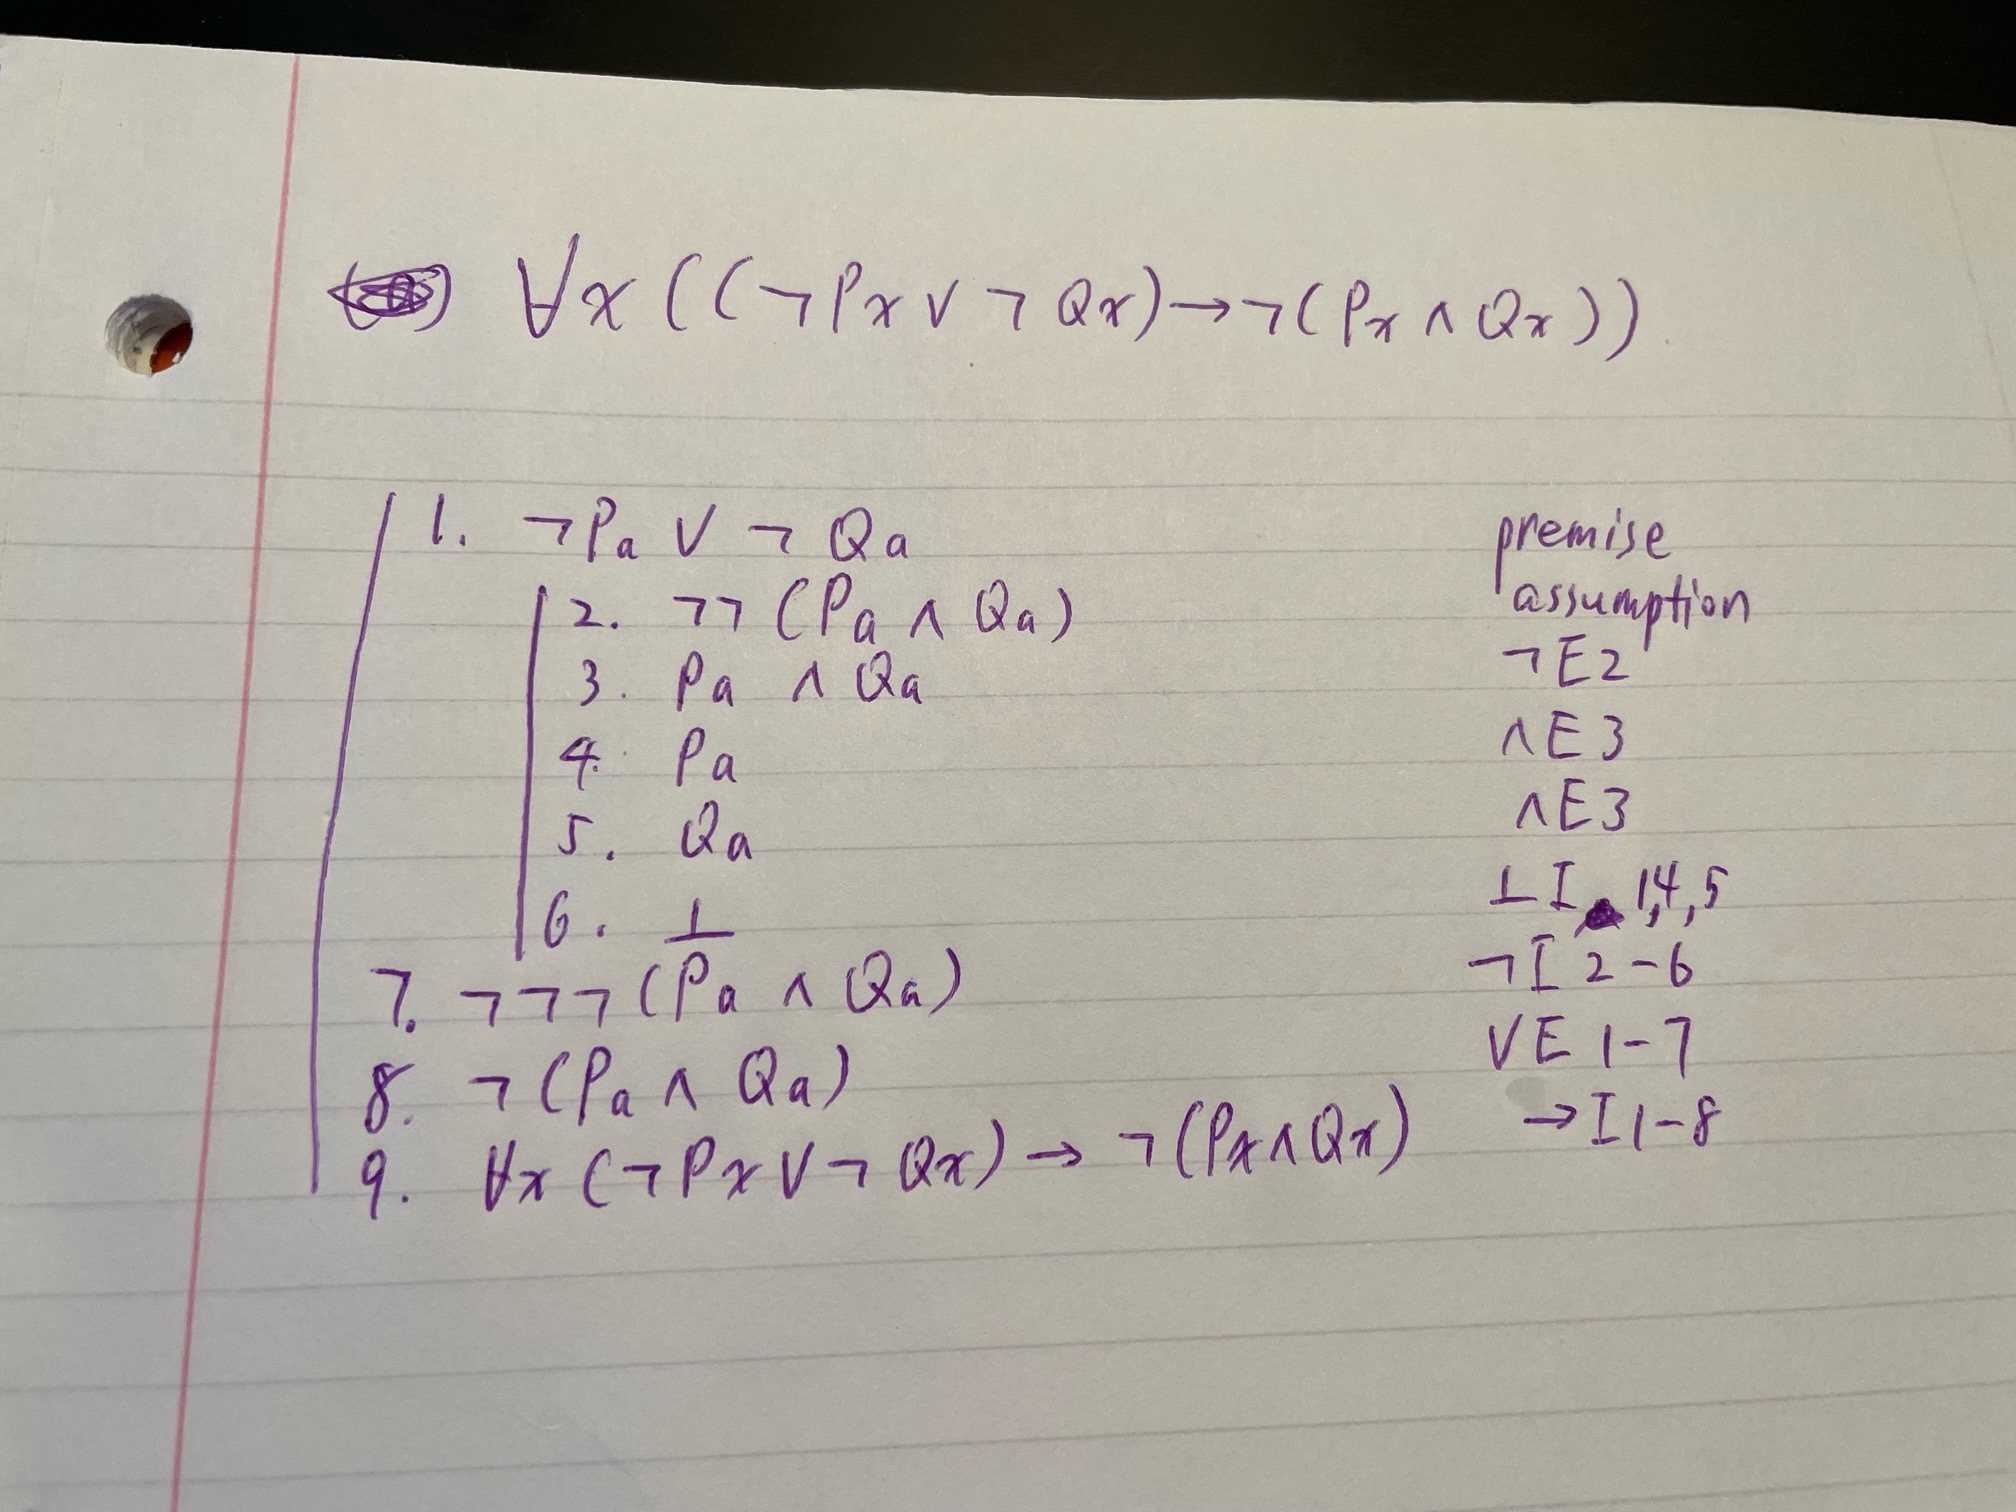 ∀x((¬Px∨¬Qx)→¬(Px∧Qx))
1. ¬Pa ∨ ¬Qa premise
2. ¬¬(Pa ∧ Qa) assumption
3. Pa ∧ Qa ¬E2
4. Pa ∧E3
5. Qa ∧E3
6. ⊥ ⊥I 1,4,5
7. ¬¬¬(Pa ∧ Qa) ¬I 2-6
8. ¬(Pa ∧ Qa) ∨E 1-7
9. ∀x(¬Px∨¬Qx)→¬(Px∧Qx) →I 1-8